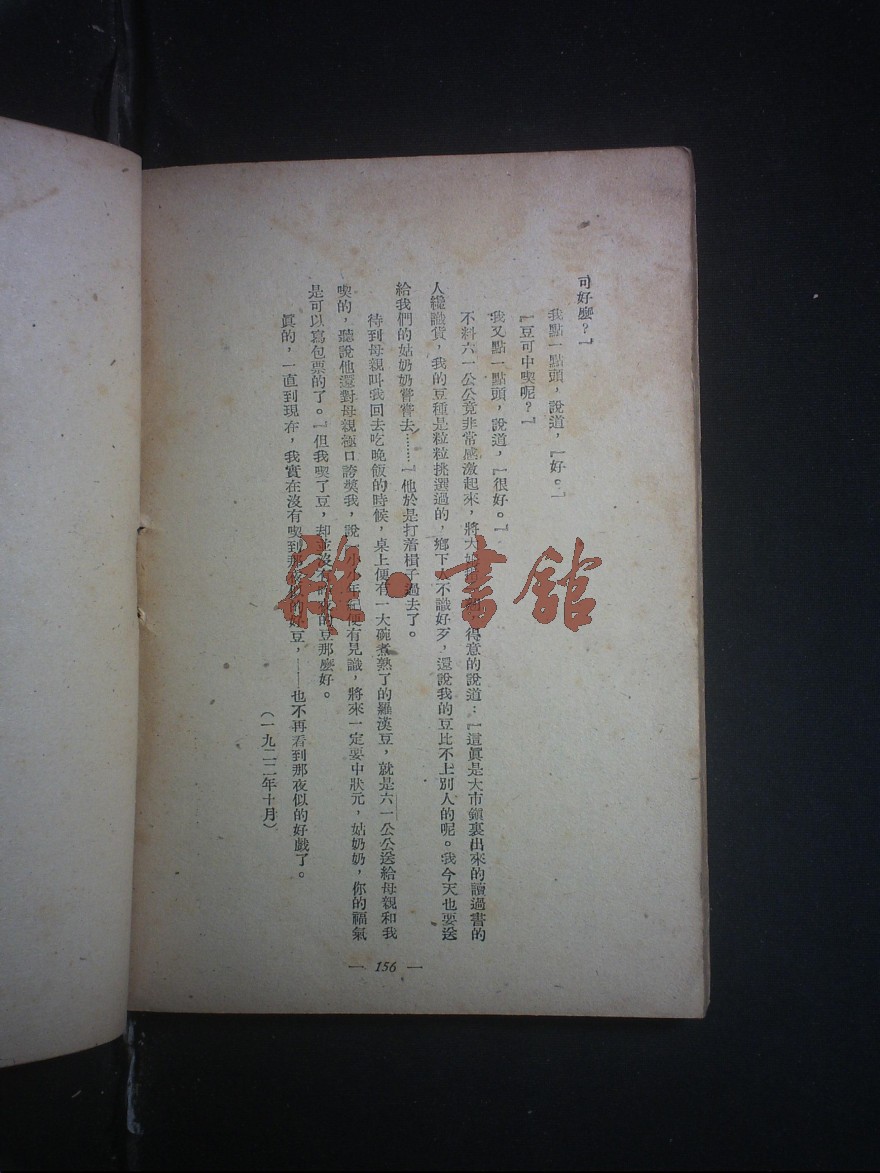 可好麼？』
我點一點頭，說道，『好。』
『豆可中喫呢？』
我又點一點頭，說道，『很好。』
不料六一公公竟非常感激起來，將大 得意的說道：『這眞是大市鎮裏出來的讀過書的
人纔識貨，我的豆種是粒粒挑選過的，鄉下人不識好歹，還說我的豆比不上別人的呢。我今天也要送
給我們的姑奶奶嘗嘗去……』他於是打着楫子過去了。
待到母親叫我回去吃晚飯的時候，桌上便有一大碗煮熟了的羅漢豆，就是六一公公送給母親和我
喫的，聽說他還對母親極口誇奬我，說『小小年紀便有見識，將來一定要中狀元，姑奶奶，你的福氣
是可以寫包票的了。』但我喫了豆，却並沒有 的豆那麼好。
眞的，一直到現在，我實在沒有喫到那 好豆，——也不再看到那夜似的好戲了。
（一九二二年十月）
— 156 —
雜·書館